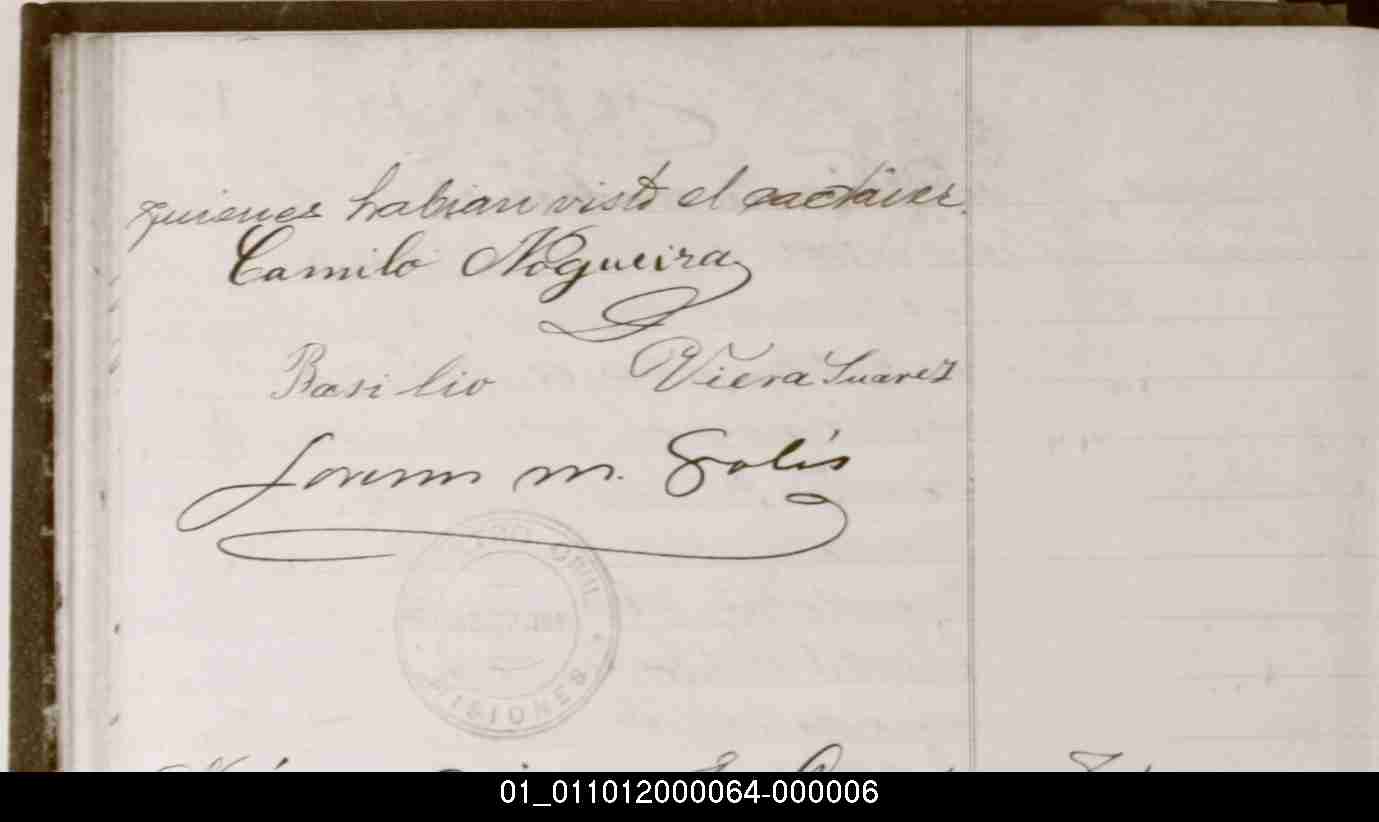 quienes habian visto el cadáver.
Camilo Nogueira
Basilio Viera Suarez
m. Solís
MISIONES
01_011012000064-000006